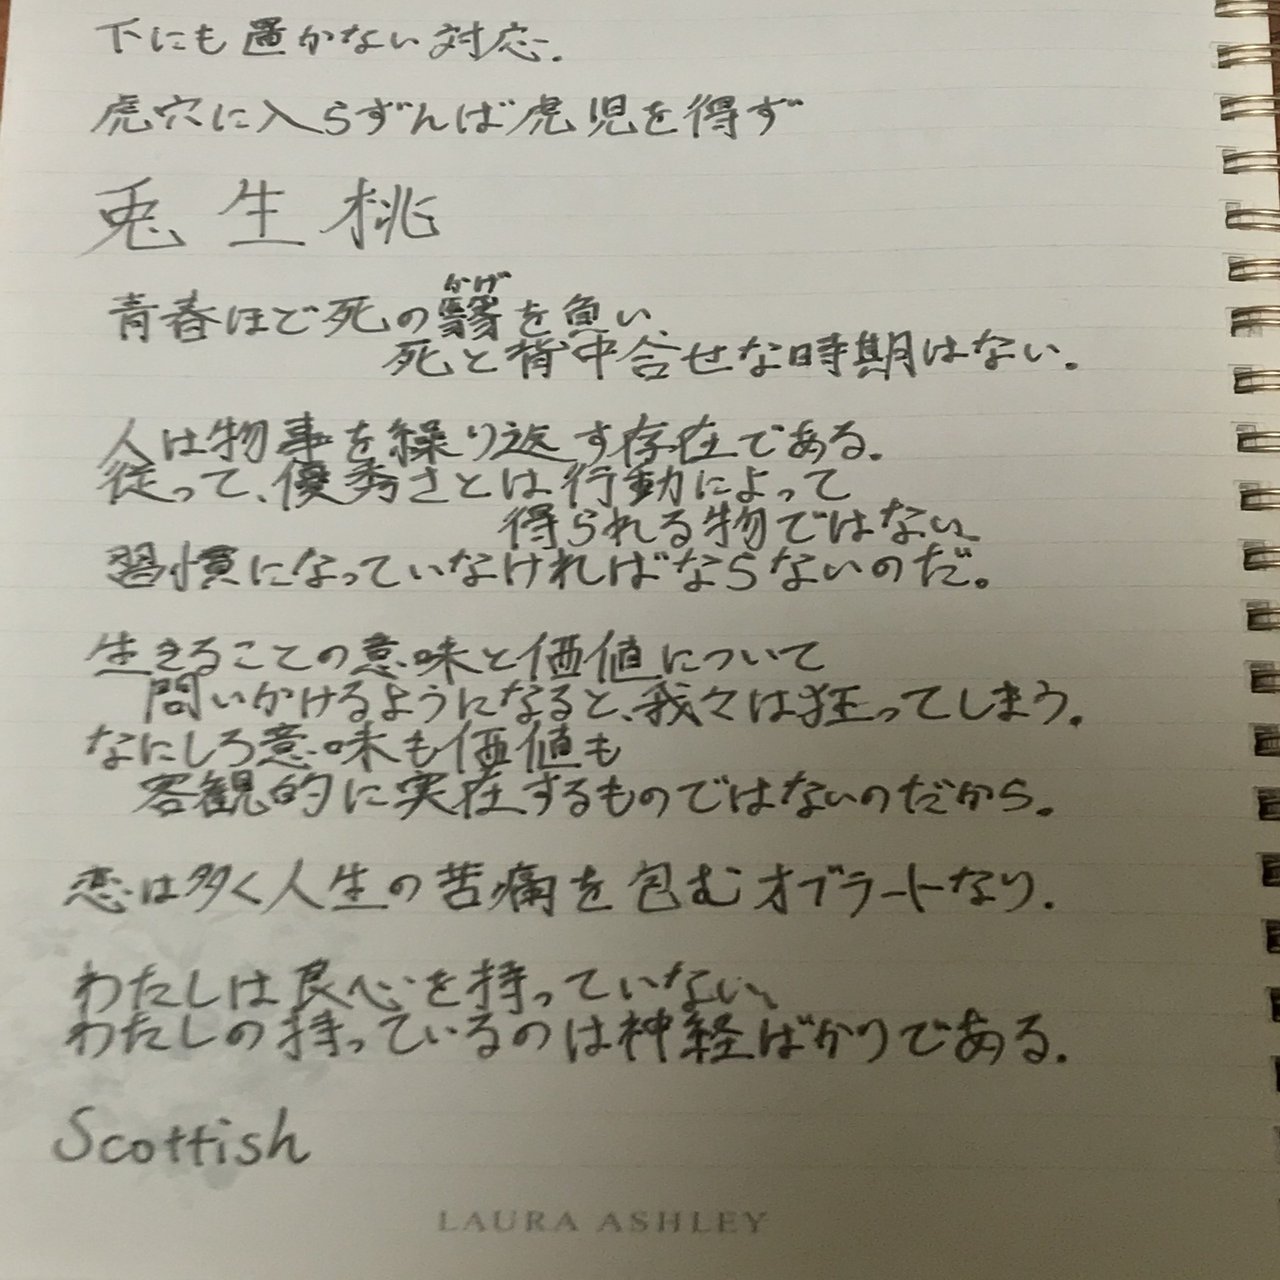 下にも置かない対応.
虎穴に入らずんば虎児を得ず
兎生桃
青春ほど死の翳を負い、
かげ
死と背中合せな時期はない.
人は物事を繰り返す存在である.
従って、優秀さとは行動によって
得られる物ではない、
習慣になっていなければならないのだ。
生きることの意味と価値について
問いかけるようになると、我々は狂ってしまう.
なにしろ意味も価値も
客観的に実在するものではないのだから.
恋は多く人生の苦痛を包むオブラートなり.
わたしは良心を持っていない、
わたしの持っているのは神経ばかりである.
Scottish
LAURA ASHLEY